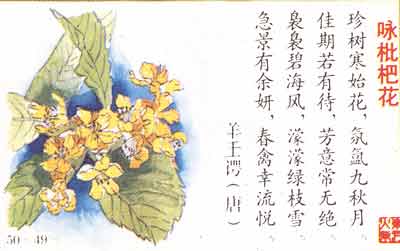 咏枇杷花
珍树寒始花，氛氲九秋月
佳期若有待，芳意常无绝
袅袅碧海风，濛濛绿枝雪
急景有余妍，春禽幸流悦
羊王谔（唐）
50-49